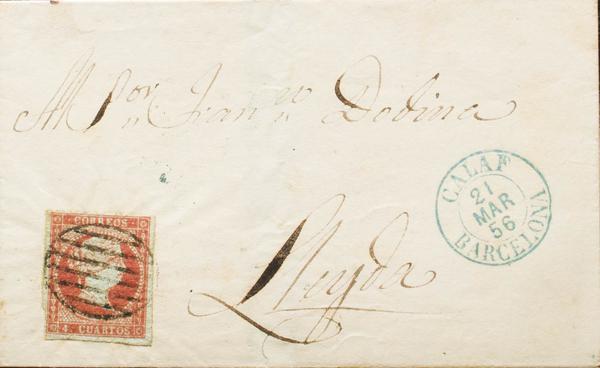 M Por Fran.co Dodina
CALAF
21
MAR
56
BARCELONA
CORREOS
4 CUARTOS
Lleyda